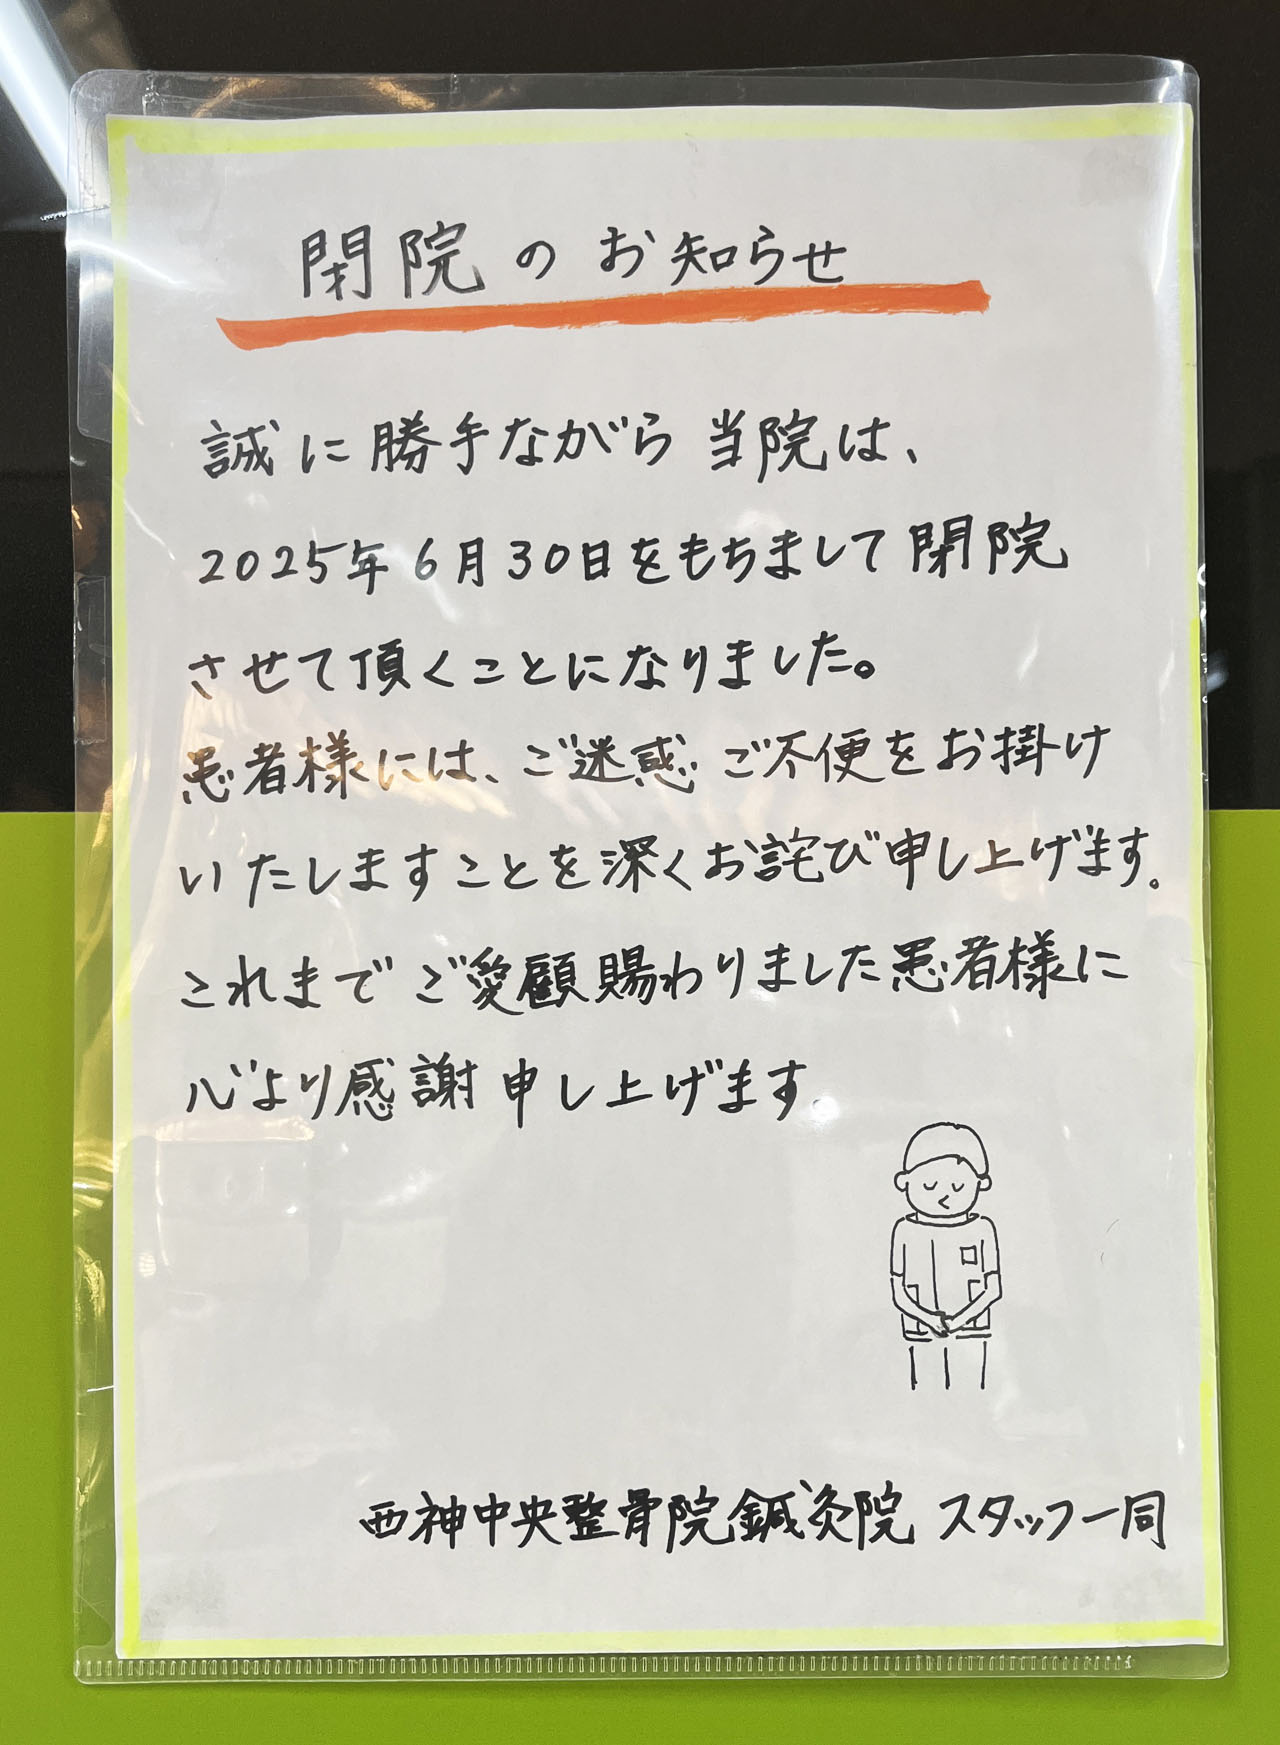 閉院のお知らせ
誠に勝手ながら当院は、
2025年6月30日をもちまして閉院
させて頂くことになりました。
患者様には、ご迷惑ご不便をお掛け
いたしますことを深くお詫び申し上げます。
これまでご愛顧賜わりました患者様に
心より感謝申し上げます。
西神中央整骨院鍼灸院 スタッフ一同